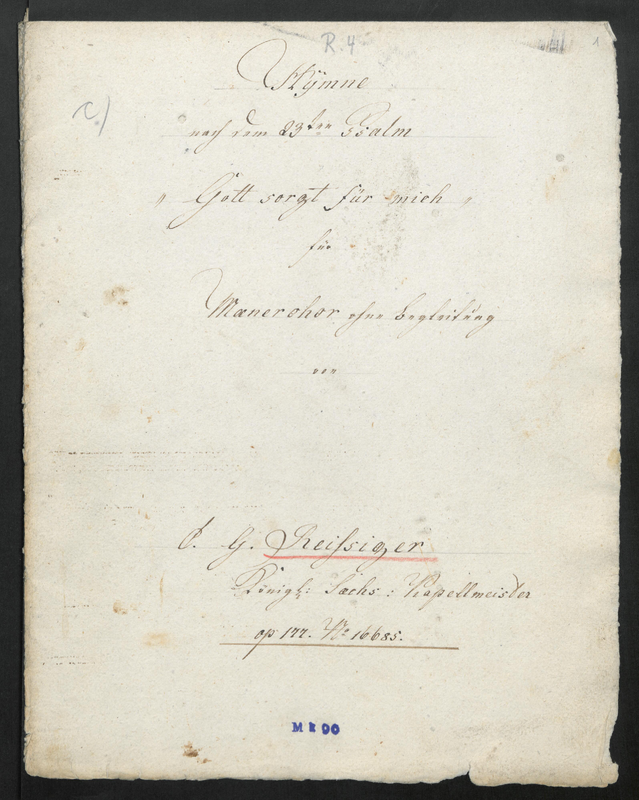 R. 4
1
c)
Hÿmne
nach dem 23ten Psalm
„ Gott sorgt für mich "
für
Mænerchor ohne Begleitüng
von
C. G. Reißiger
Königl: Sæchs: Kapellmeister
op 177. No 16685.
M k 90